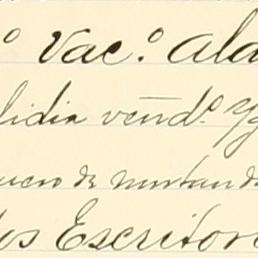 º Vac.º Ala
lidia vend.º Yg
uero de montan de
los Escritor